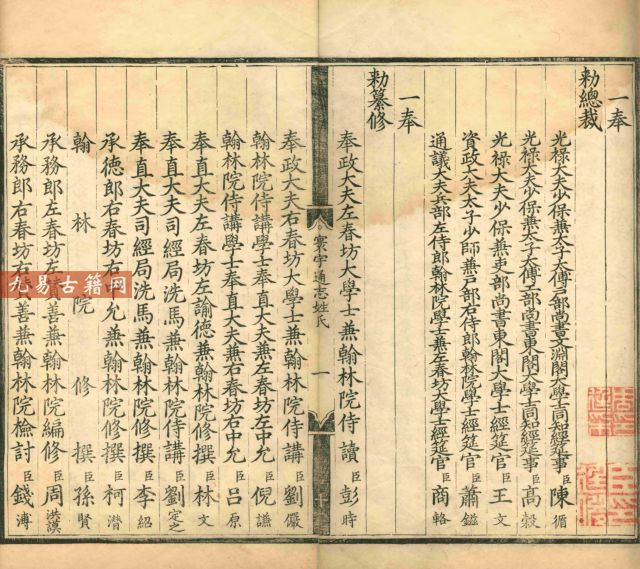 一奉
勅總裁
光祿大夫少保兼太子太傅戶部尚書文淵閣大學士同知經筵事臣陳循
光祿大夫少保兼太子太傅工部尚書東閣大學士同知經筵事臣高穀
光祿大夫少保兼吏部尚書東閣大學士經筵官臣王文
資政大夫太子少師兼戶部右侍郎翰林院學士經筵官臣蕭鎡
通議大夫兵部左侍郎翰林院學士兼左春坊大學士經筵官臣商輅
一奉
勅纂修
奉政大夫左春坊大學士兼翰林院侍讀臣彭時
寰宇通志姓氏
一
奉政大夫右春坊大學士兼翰林院侍講臣劉儼
翰林院侍講學士奉直大夫兼左春坊左中允臣倪謙
翰林院侍講學士奉直大夫兼右春坊右中允臣呂原
奉直大夫左春坊左諭德兼翰林院修撰臣林文
奉直大夫司經局洗馬兼翰林院侍講臣劉定之
奉直大夫司經局洗馬兼翰林院修撰臣李紹
承德郎右春坊右中允兼翰林院修撰臣柯潛
翰林院修撰臣孫賢
承務郎左春坊左贊善兼翰林院編修臣周洪謨
承務郎右春坊右贊善兼翰林院檢討臣錢溥
九易古籍网